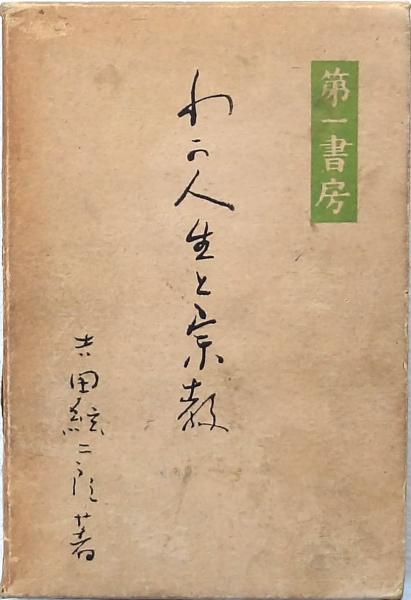 第一書房
わが人生と宗教
吉田絃二郎著